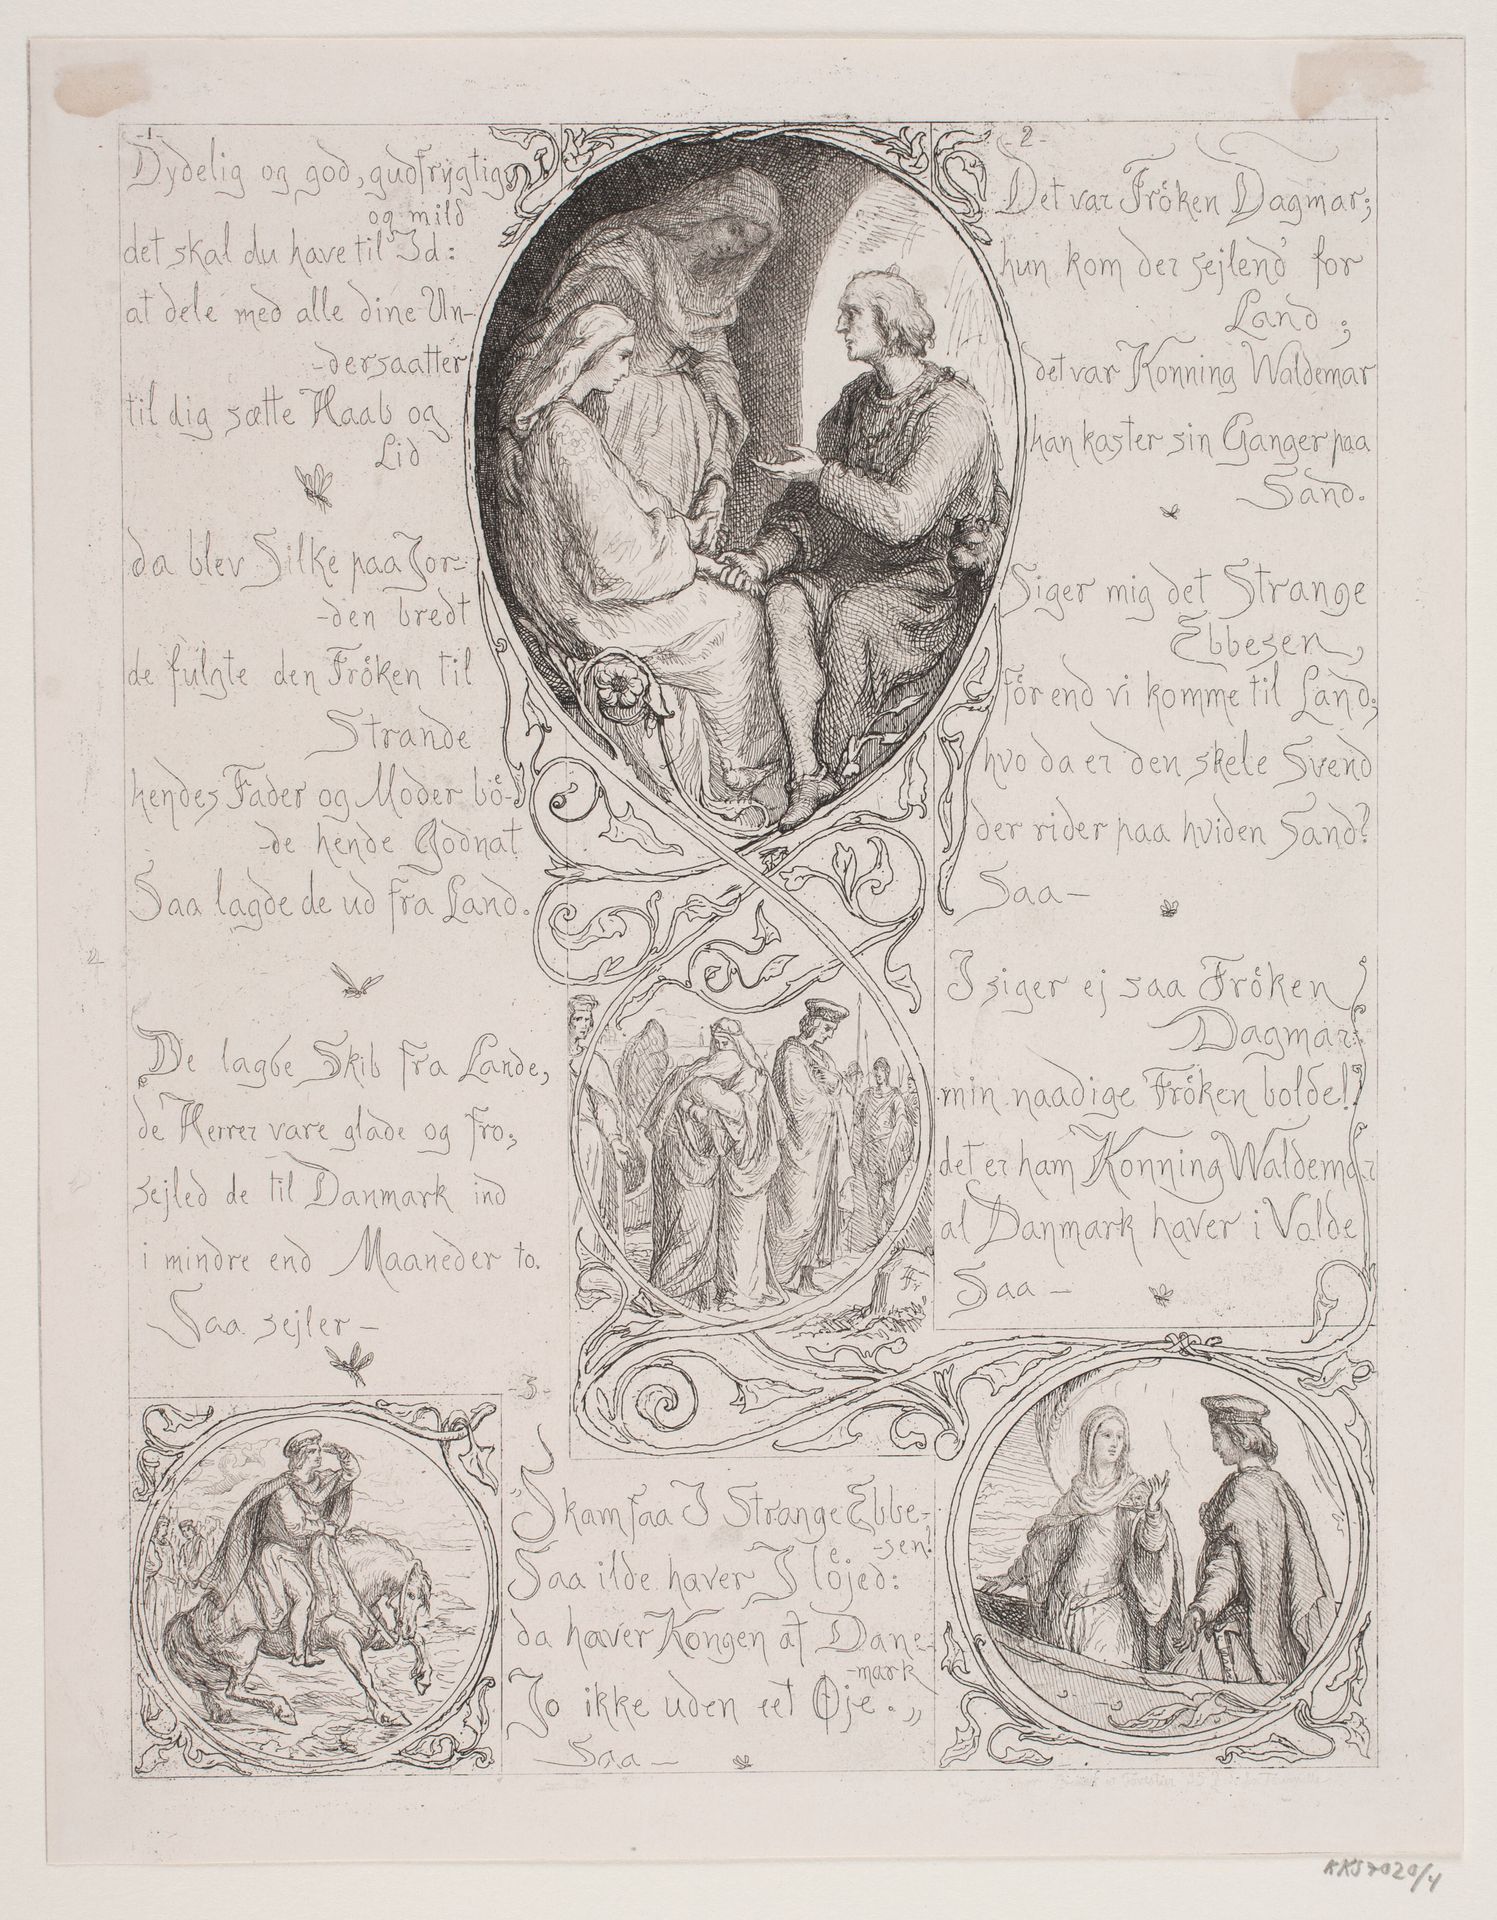 -1-
Dydelig og god, gudfrygtig
og mild
det skal du have til Id:
at dele med alle dine Un-
-dersaatter
til dig sætte Haab og
Lid
da blev Silke paa Jor-
-den bredt
de fulgte den Frôken til
Strande
hendes Fader og Moder bö-
-de hende Godnat
Saa lagde de ud fra Land.
De lagde Skib fra Lande,
de Herrer vare glade og fro;
sejled de til Danmark ind
i mindre end Maaneder to.
Saa sejler-
-2-
Det var Frôken Dagmar;
hun kom der sejlend' for
Land;
det var Konning Waldemar
han kaster sin Ganger paa
Sand.
Siger mig det Strange
Ebbesen,
förend vi komme til Land;
hvo da er den skele Svend
der rider paa hviden Sand?
Saa-
I siger ej saa Frôken
Dagmar;
min naadige Frôken bolde!
det er ham Konning Waldemar
al Danmark haver i Volde
Saa-
-3-
"Skam faa I Strange Ebbe-
-sen!
Saa ilde haver I löjed:
da haver Kongen af Dane-
-mark
Jo ikke uden eet Øje."
Saa-
KKS7020/4